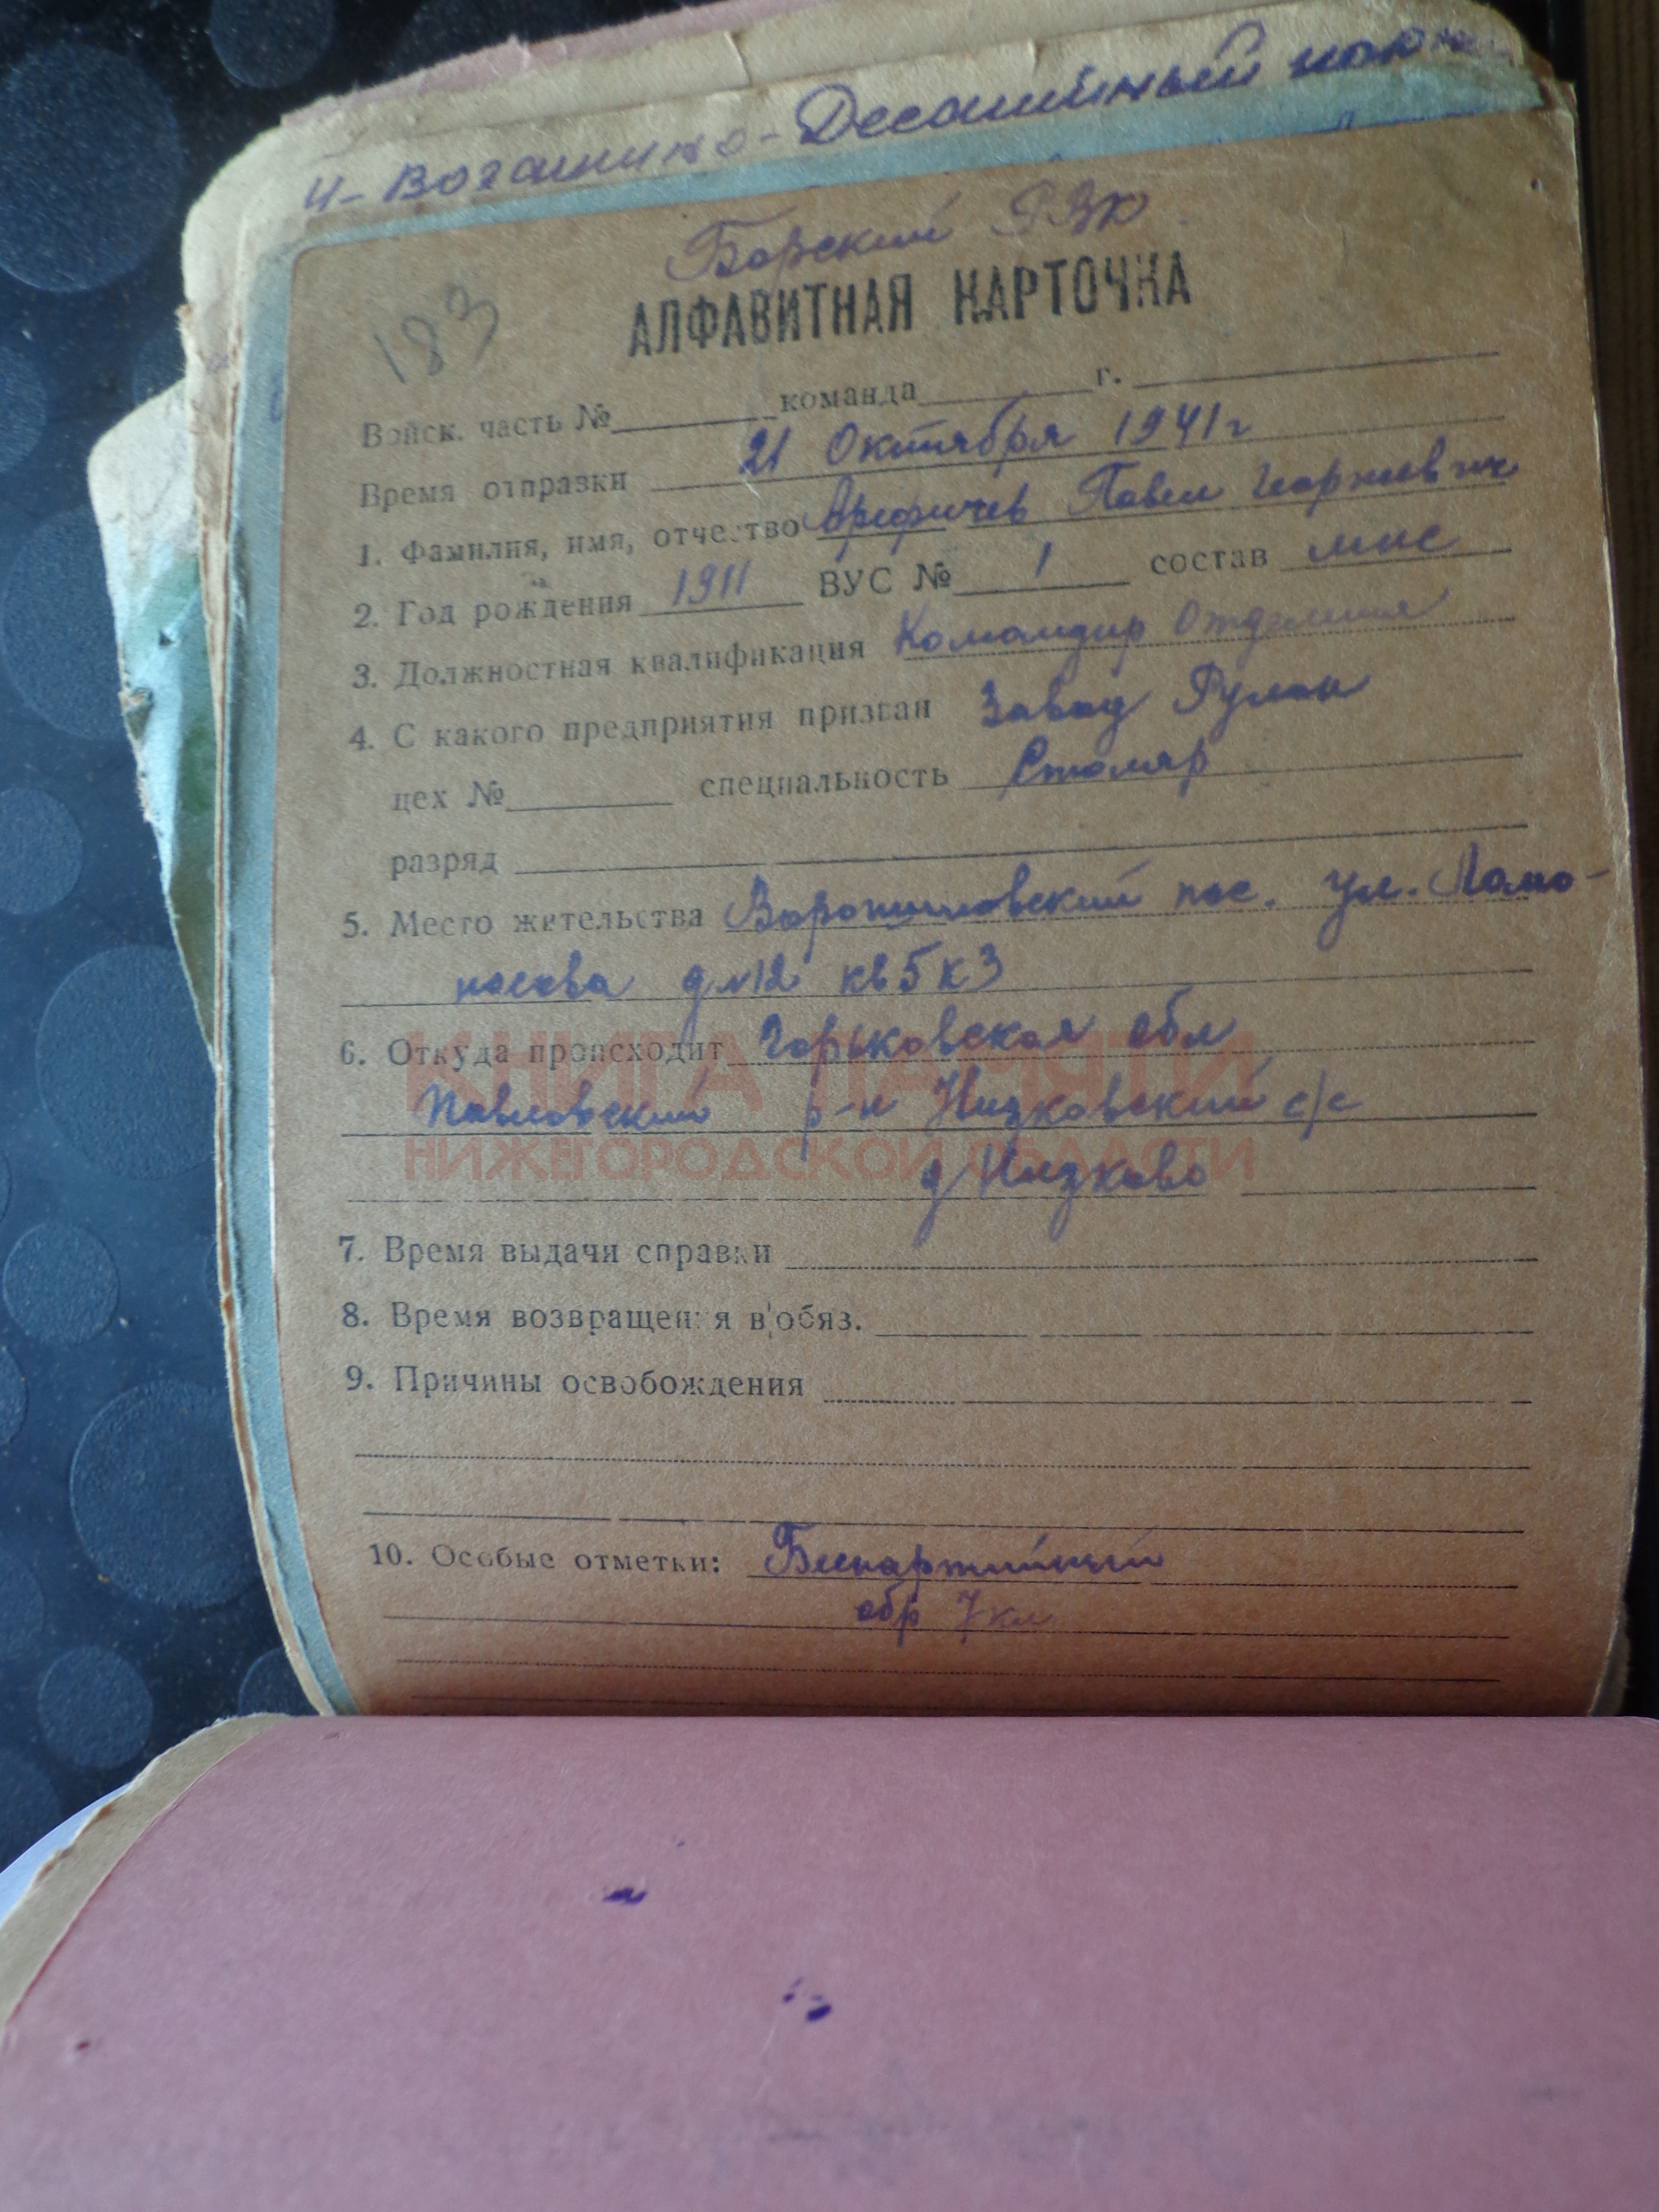 Борский РВК
183
АЛФАВИТНАЯ КАРТОЧКА
Войск. часть № команда г.
Время отправки 21 Октября 1941г
1. Фамилия, имя, отчество Арефичев Павел Георгиевич
2. Год рождения 1911 ВУС № 1 состав мнс
3. Должностная квалификация Командир Отделения
4. С какого предприятия призван Завод
цех № специальность Столяр
разряд
5. Место жительства Ворошиловский пос. ул. Ломо-
носова д №12 кв 5 к 3
6. Откуда происходит Горьковская обл
Павловский р-н Низковский с/с
д Низково
КНИГА ПАМЯТИ
НИЖЕГОРОДСКОЙ ОБЛАСТИ
7. Время выдачи справки
8. Время возвращения в обяз.
9. Причины освобождения
10. Особые отметки: Беспартийный
обр 7 кл